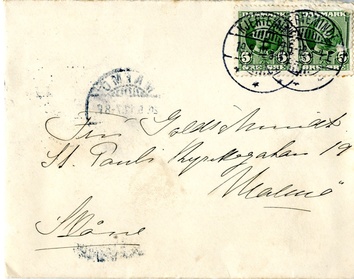 DANMARK DANMARK
5 ØRE 5 5 ØRE 5
MALMÖ
Fru Goldschmidt.
St. Pauli Kyrkogatan 19
Malmö
Skåne